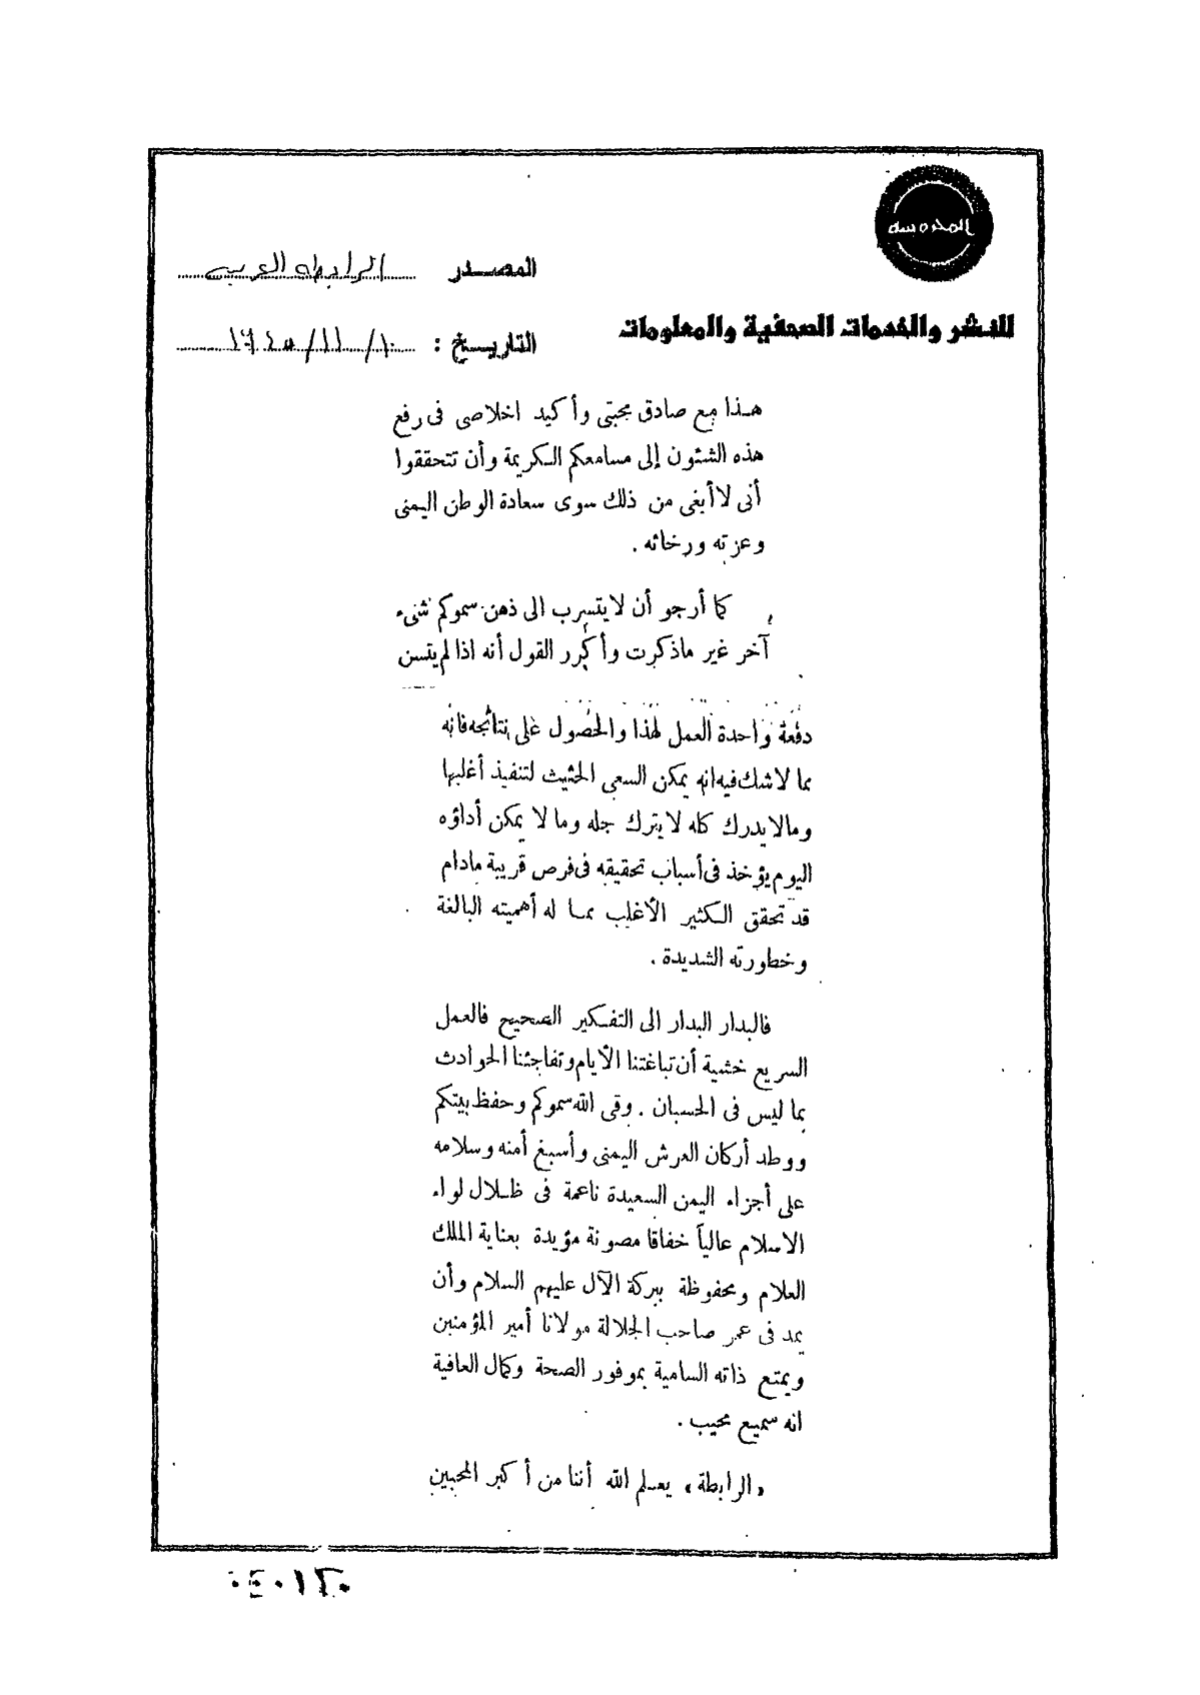 المحروسة
المصدر الرابطة العربية
للنشر والخدمات الصحفية والمعلومات
التاريخ : ١٠/١١/
هذا مع صادق محبتى وأكيد اخلاصى فى رفع
هذه الشئون إلى مسامعكم الكريمة وأن تتحققوا
أنى لا أبغى من ذلك سوى سعادة الوطن اليمنى
وعزته ورخائه .
كما أرجو أن لايتسرب الى ذهن سموكم شىء
آخر غير ماذكرت وأكرر القول أنه اذا لم يتسن
دفعة واحدة العمل لهذا والحصول على نتائجه فانه
مما لاشك فيه انه يمكن السعى الحثيث لتنفيذ أغلبها
ومالا يدرك كله لا يترك جله وما لا يمكن أداؤه
اليوم يؤخذ فى أسباب تحقيقه فى فرص قريبة مادام
قد تحقق الكثير الأغلب مما له أهميته البالغة
وخطورته الشديدة .
فالبدار البدار الى التفكير الصحيح فالعمل
السريع خشية أن تباغتنا الأيام وتفاجئنا الحوادث
بما ليس فى الحسبان . وقى الله سموكم وحفظ بيتكم
ووطد أركان العرش اليمنى وأسبغ أمنه وسلامه
على أجزاء اليمن السعيدة ناعمة فى ظلال لواء
الاسلام عالياً خفاقا مصونة مؤيدة بعناية الملك
العلام ومحفوظة ببركة الآل عليهم السلام وأن
يمد فى عمر صاحب الجلالة مولانا أمير المؤمنين
ويمتع ذاته السامية بموفور الصحة وكمال العافية
انه سميع مجيب .
«الرابطة» يعلم الله أننا من أكبر المحبين